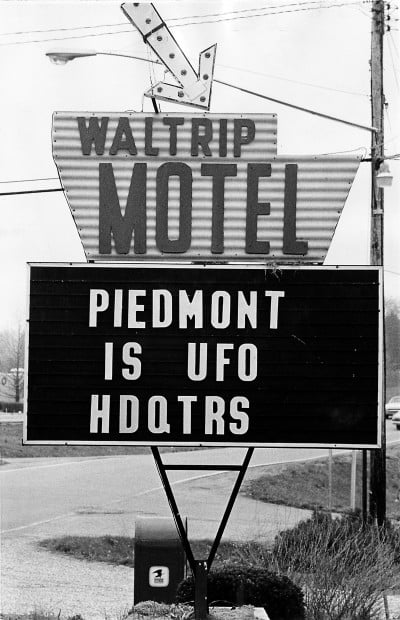 WALTRIP
MOTEL
PIEDMONT
IS UFO
HDQTRS